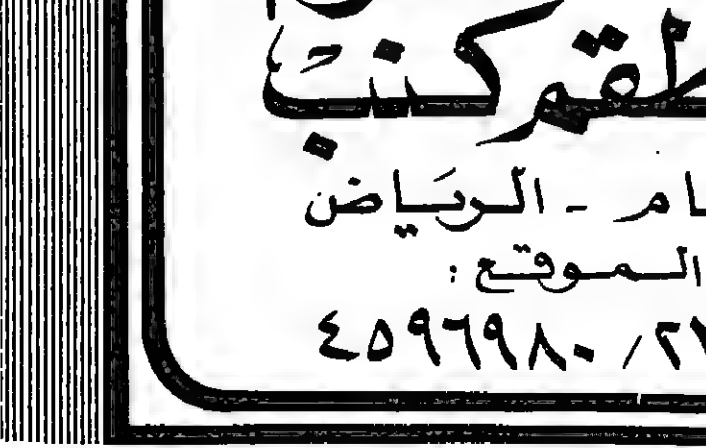 طقم كنب
ام - الريَاض
الموقع :
٤٥٩٦٩٨٠ / ٢٧